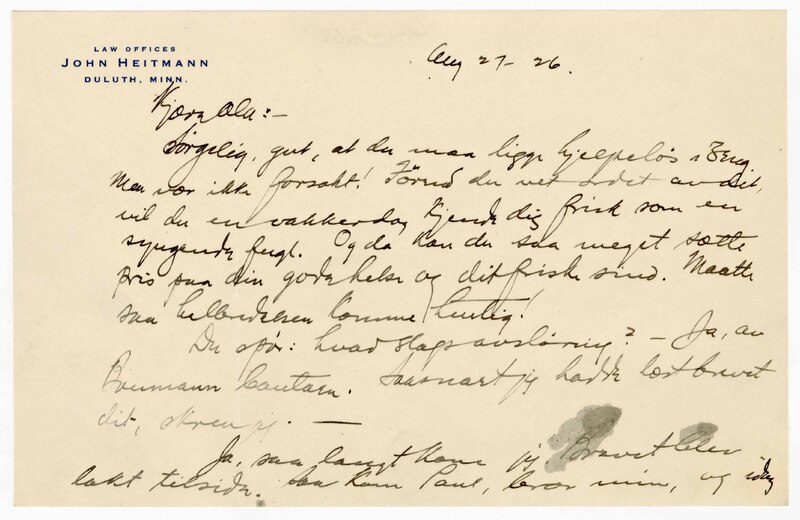 LAW OFFICES
JOHN HEITMANN
DULUTH, MINN.
Aug 27 - 26.
Kjære Ola: -
Sørgelig, gut, at du maa ligge hjelpeløs i seng.
Men vær ikke forsakt! Førend du vet ordet av det,
vil du en vakker dag kjende dig frisk som en
syngende fugl. Og da kan du saa meget sætte
pris paa din gode helse og dit friske sind. Maatte
saa helbredelsen komme hurtig!
Du spør: hvad slags avsløring? - Ja, av
Buemann. Saasnart jeg hadde læst brevet
dit, skrev jeg. -
Ja, saa langt kom jeg. Brevet blev
lakt tilside. Saa kom Paul, bror min, og idag